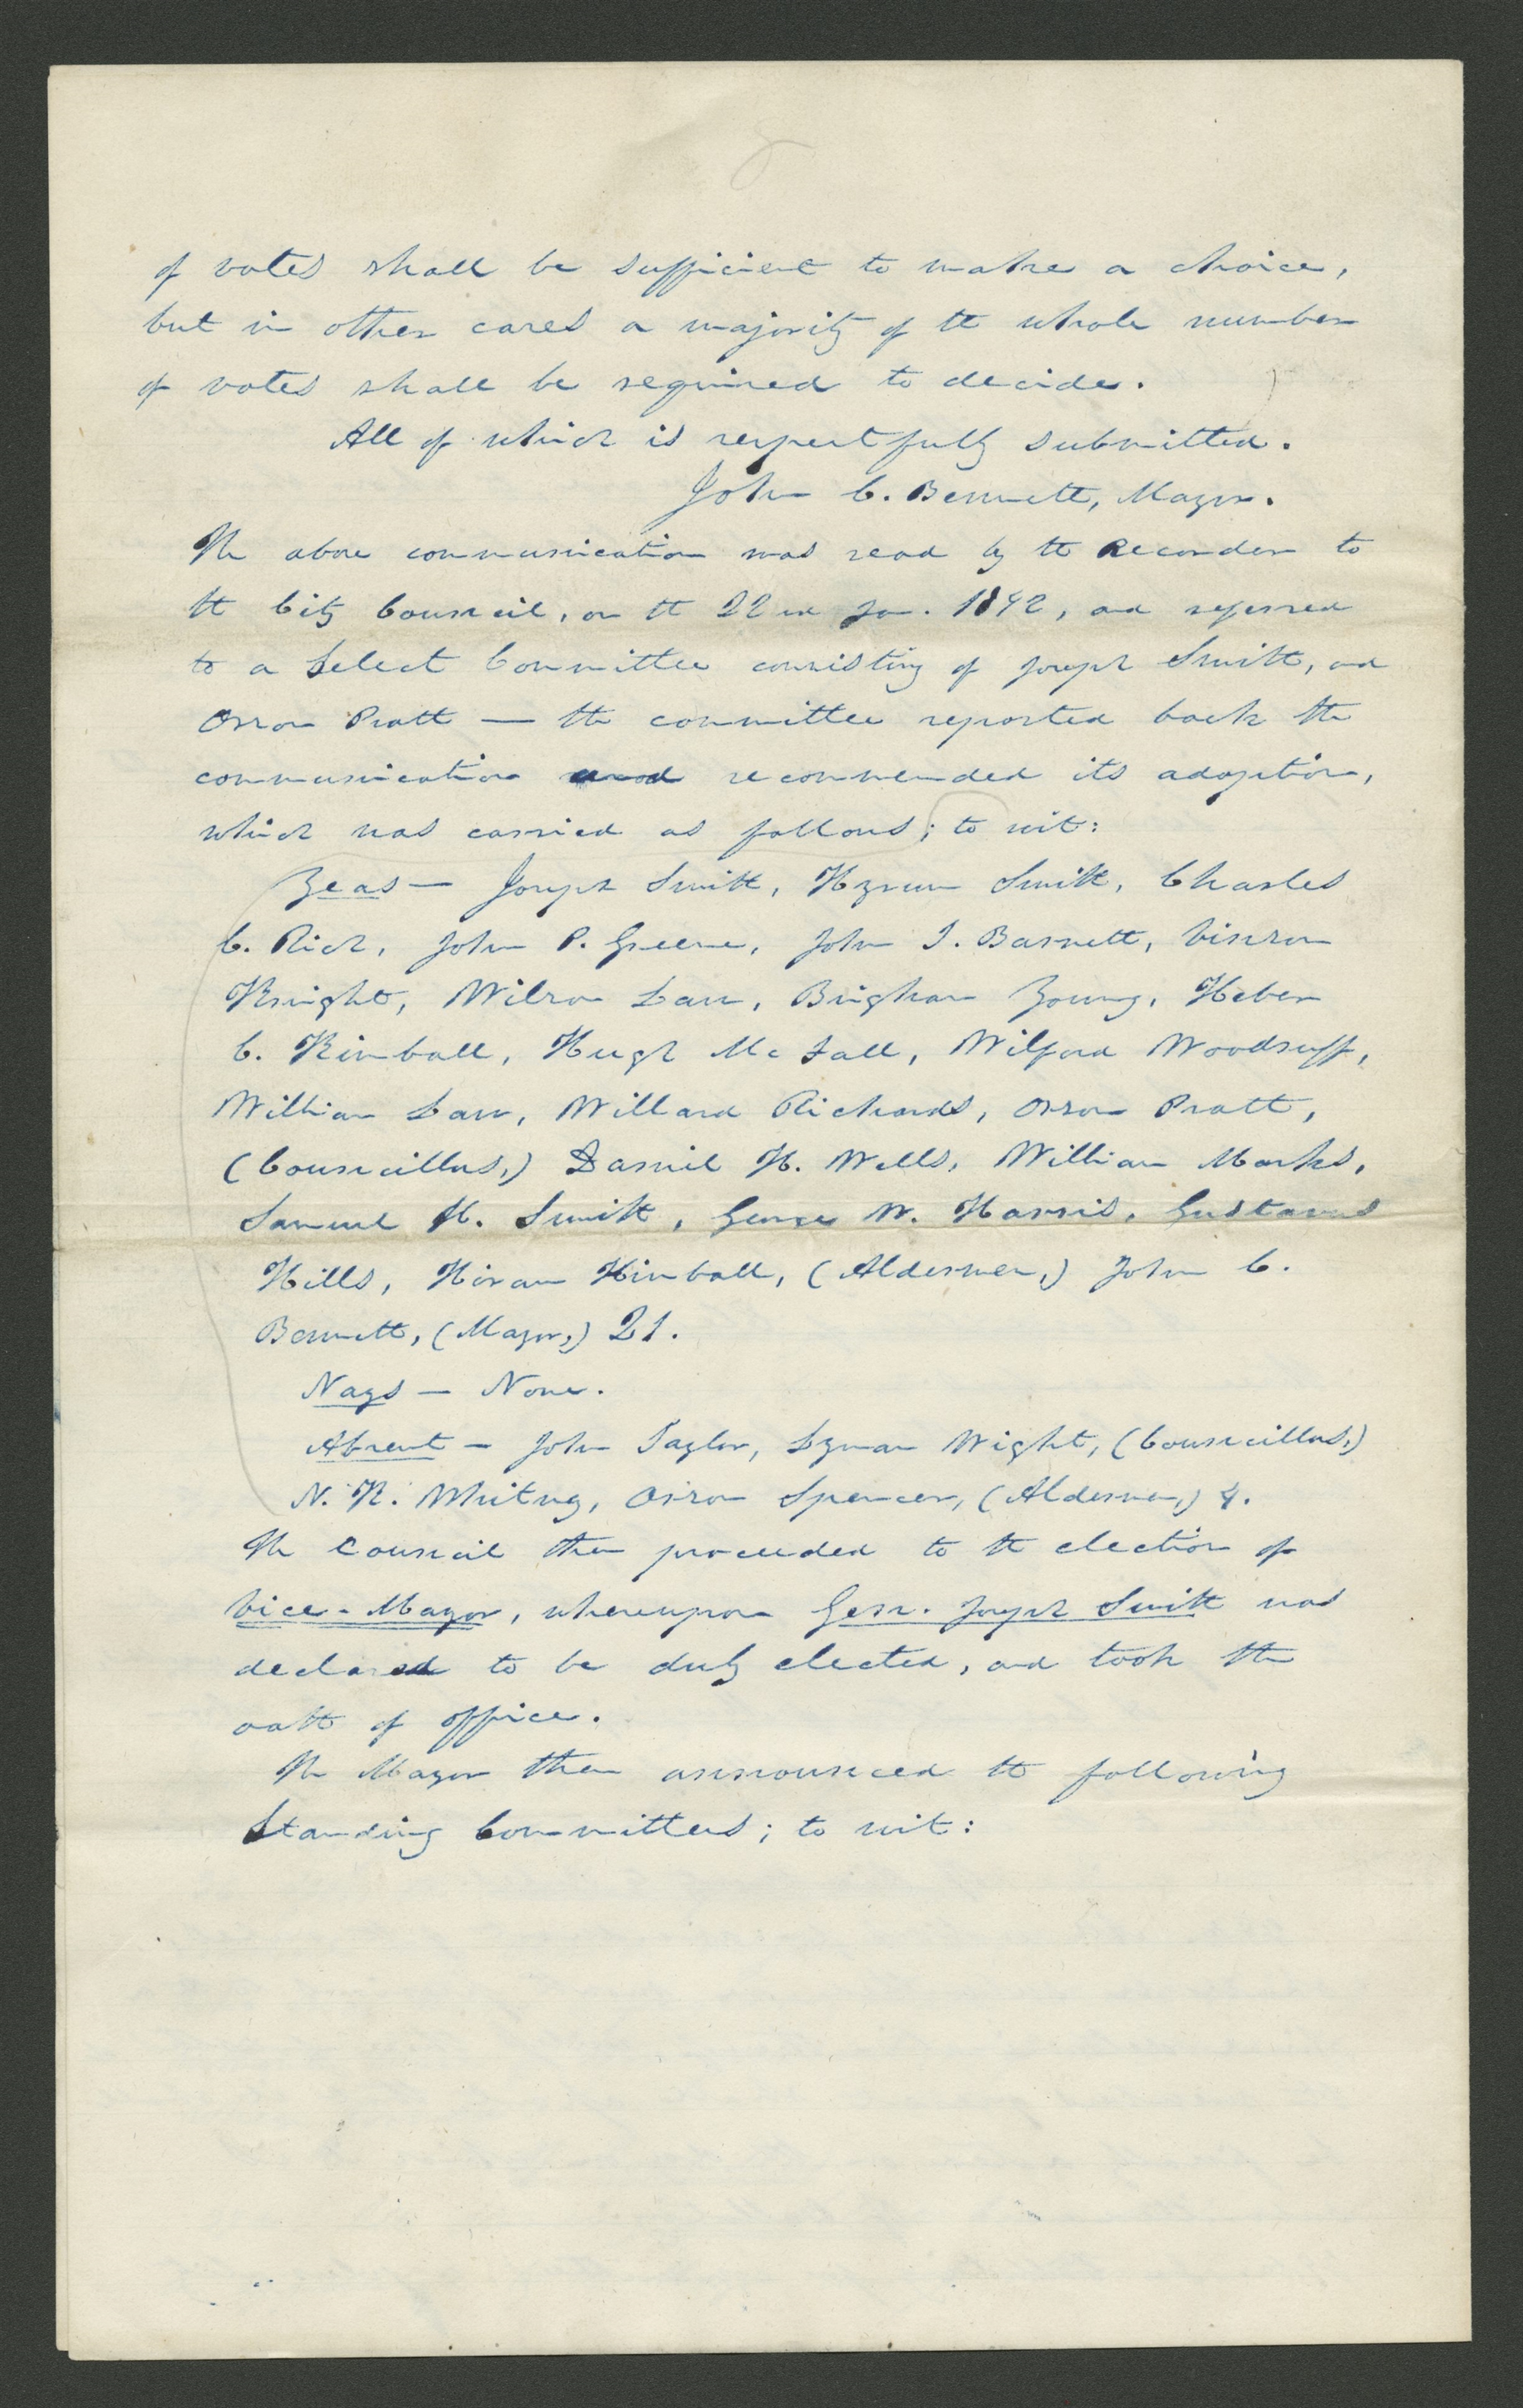 of votes shall be sufficient to make a choice,
but in other cases a majority of the whole number
of votes shall be required to decide.
All of which is respectfully submitted.
John C. Bennett, Mayor.
The above communication was read by the Recorder to
the City Council, on the 22nd Jan. 1842, and referred
to a Select Committee consisting of Joseph Smith, and
Orson Pratt — the committee reported back the
communication and recommended its adoption,
which was carried as follows; to wit:
Yeas — Joseph Smith, Hyrum Smith, Charles
C. Rich, John P. Greene, John T. Barnett, Vinson
Knight, Wilson Law, Brigham Young, Heber
C. Kimball, Hugh McFall, Wilford Woodruff,
William Law, Willard Richards, Orson Pratt,
(Councillors,) Daniel H. Wells, William Marks,
Samuel H. Smith, George W. Harris, Gustavus
Hills, Hiram Kimball, (Aldermen,) John C.
Bennett, (Mayor,) 21.
Nays — None.
Absent — John Taylor, Lyman Wight, (Councillors,)
N. K. Whitney, Orson Spencer, (Aldermen,) 4.
The Council then proceeded to the election of
Vice-Mayor, whereupon Gen. Joseph Smith was
declared to be duly elected, and took the
oath of office.
The Mayor then announced the following
Standing Committees; to wit: